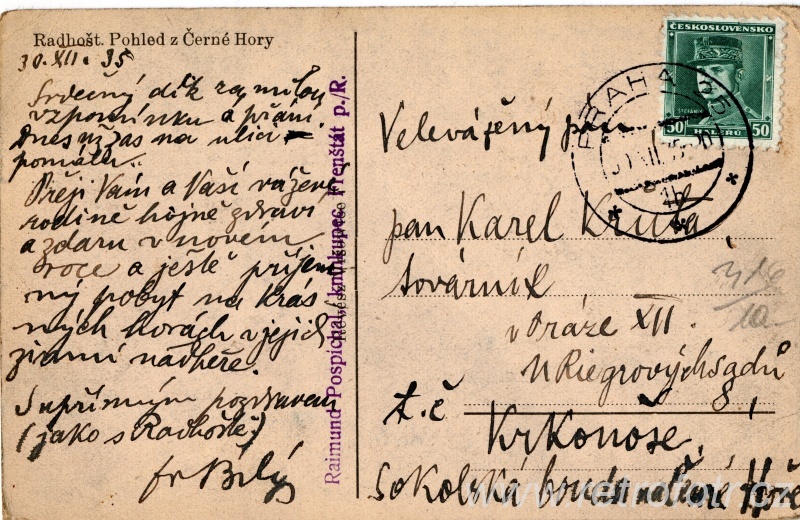 Radhošť. Pohled z Černé Hory
30. XII. 35
Srdečný dík za milou
vzpomínku a přání.
Dnes už zas na ulici
pomalu.
Přeji Vám a Vaší vážené
rodině hojně zdraví
a zdaru v novém
roce a ještě příjem-
ný pobyt na krás-
ných horách v jejich
zimní nádheře.
S upřímným pozdravem
(jako s Radhoště)
Fr Bílý
Raimund Pospíchal, knihkupec, Frenštát p./R.
ČESKOSLOVENSKO
ŠTEFÁNIK
50 HALÉŘŮ 50
PRAHA 25
1b
Velevážený pan
pan Karel Kruta,
továrník
v Praze XII.
U Riegrových sadů
8,
t. č
Krkonoše,
Sokolská bouda na